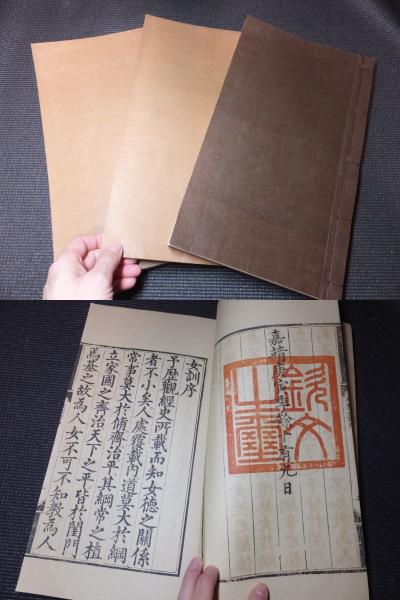 嘉靖庚寅十有九日
欽文之璽
女訓序
予歷觀經史所載而知女德之關係
者不小矣人處覆載內道莫大於綱
常事莫大於脩齊治平其綱常之植
立家國之齊治天下之平皆於閨門
爲基之故爲人女不可不知教爲人